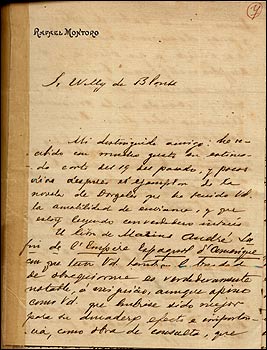 RAFAEL MONTORO
Sr Willy de Blonk
Mi distinguido amigo: he re-
cibido con mucho gusto su estima-
da carta del 19 del pasado, y pocos
días después el ejemplar de la
novela de que ha tenido Vd.
la amabilidad de enviarme, y que
estoy leyendo con verdadero interés
El libro de Marius André La
fin de l'Empire Espagnol d'Amérique
con que Vd. también la
de obsequiarme es verdaderamente
notable, a mi juicio, aunque opino
como Vd. que hubiese sido mejor
para su duradero efecto e importan-
cia, como obra de consulta, que